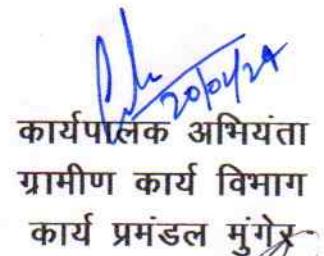 20/01/24
कार्यपालक अभियंता
ग्रामीण कार्य विभाग
कार्य प्रमंडल मुंगेर